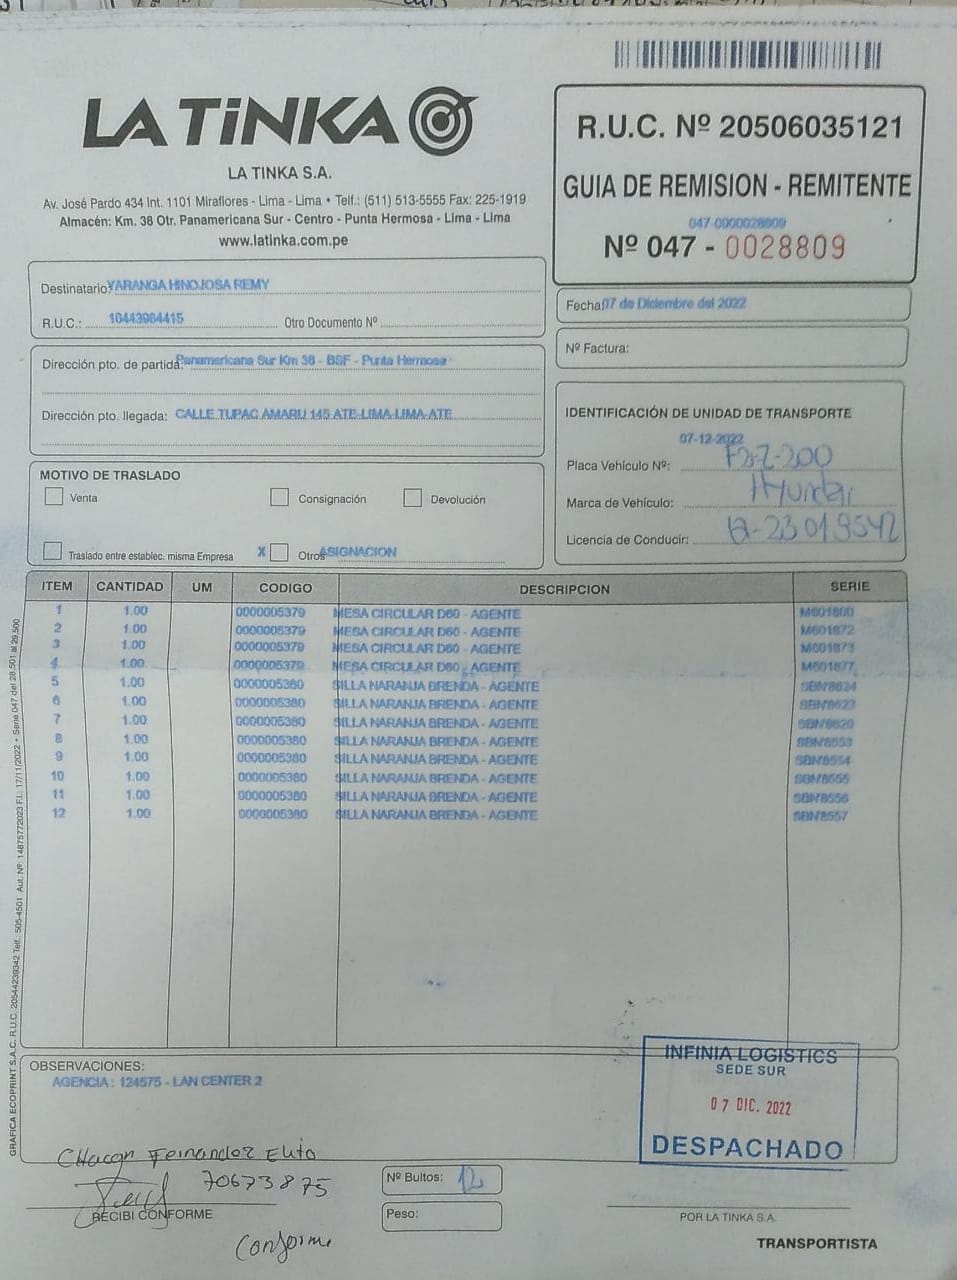 LA TiNKA
LA TINKA S.A.
Av. José Pardo 434 Int. 1101 Miraflores - Lima - Lima • Telf.: (511) 513-5555 Fax: 225-1919
Almacén: Km. 38 Otr. Panamericana Sur - Centro - Punta Hermosa - Lima - Lima
www.latinka.com.pe
R.U.C. Nº 20506035121
GUIA DE REMISION - REMITENTE
047-0000028809
Nº 047 - 0028809
Destinatario: YARANGA HINOJOSA REMY
R.U.C.: 10443984415 Otro Documento Nº
Fecha: 07 de Diciembre del 2022
Nº Factura:
Dirección pto. de partida: Panamericana Sur Km 38 - BSF - Punta Hermosa
Dirección pto. llegada: CALLE TUPAC AMARU 145 ATE-LIMA-LIMA-ATE
IDENTIFICACIÓN DE UNIDAD DE TRANSPORTE
07-12-2022
Placa Vehículo Nº:
Marca de Vehículo: Hyundai
Licencia de Conducir:
MOTIVO DE TRASLADO
Venta Consignación Devolución
Traslado entre establec. misma Empresa X Otros ASIGNACION
ITEM CANTIDAD UM CODIGO DESCRIPCION SERIE
1 1.00 0000005379 MESA CIRCULAR D60 - AGENTE
2 1.00 0000005379 MESA CIRCULAR D60 - AGENTE M601872
3 1.00 0000005379 MESA CIRCULAR D60 - AGENTE M601873
4 1.00 0000005379 MESA CIRCULAR D60 - AGENTE M601877
5 1.00 0000005380 SILLA NARANJA BRENDA - AGENTE SBN8624
6 1.00 0000005380 SILLA NARANJA BRENDA - AGENTE SBN8623
7 1.00 0000005380 SILLA NARANJA BRENDA - AGENTE SBN8620
8 1.00 0000005380 SILLA NARANJA BRENDA - AGENTE SBN8553
9 1.00 0000005380 SILLA NARANJA BRENDA - AGENTE SBN8554
10 1.00 0000005380 SILLA NARANJA BRENDA - AGENTE SBN8555
11 1.00 0000005380 SILLA NARANJA BRENDA - AGENTE SBN8556
12 1.00 0000005380 SILLA NARANJA BRENDA - AGENTE SBN8557
GRAFICA ECOPRINT S.A.C. R.U.C. 20544239342 Telf.: 505-4501 Aut. Nº: 14875772023 F.I.: 17/11/2022 • Serie 047 del 28,501 al 29,500
OBSERVACIONES:
AGENCIA: 124575 - LAN CENTER 2
INFINIA LOGISTICS
SEDE SUR
07 DIC. 2022
DESPACHADO
Chacon Fernandez
70673875
RECIBI CONFORME
Conforme
Nº Bultos: 12
Peso:
POR LA TINKA S.A.
TRANSPORTISTA